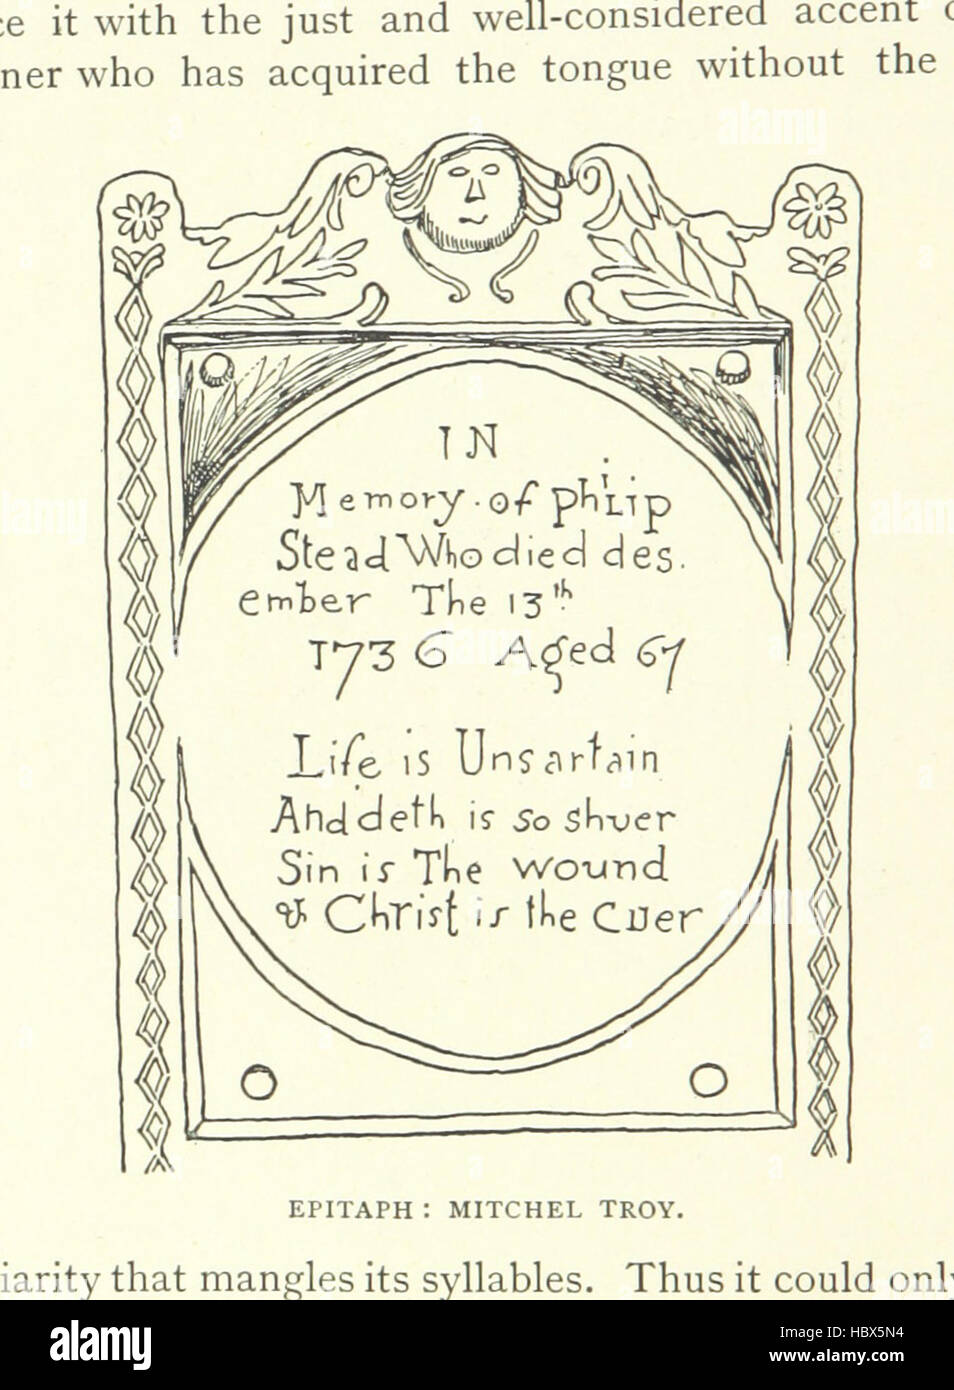 ce it with the just and well-considered accent o
ner who has acquired the tongue without the
IN
Memory. of phiLip
Stead Who died des.
ember The 13th.
1736 Aged 67
Life is Unsartain
And deth is so shuer
Sin is The wound
& Christ is the Cuer
EPITAPH: MITCHEL TROY.
iarity that mangles its syllables. Thus it could only
alamy
Image ID: HBX5N4
www.alamy.com